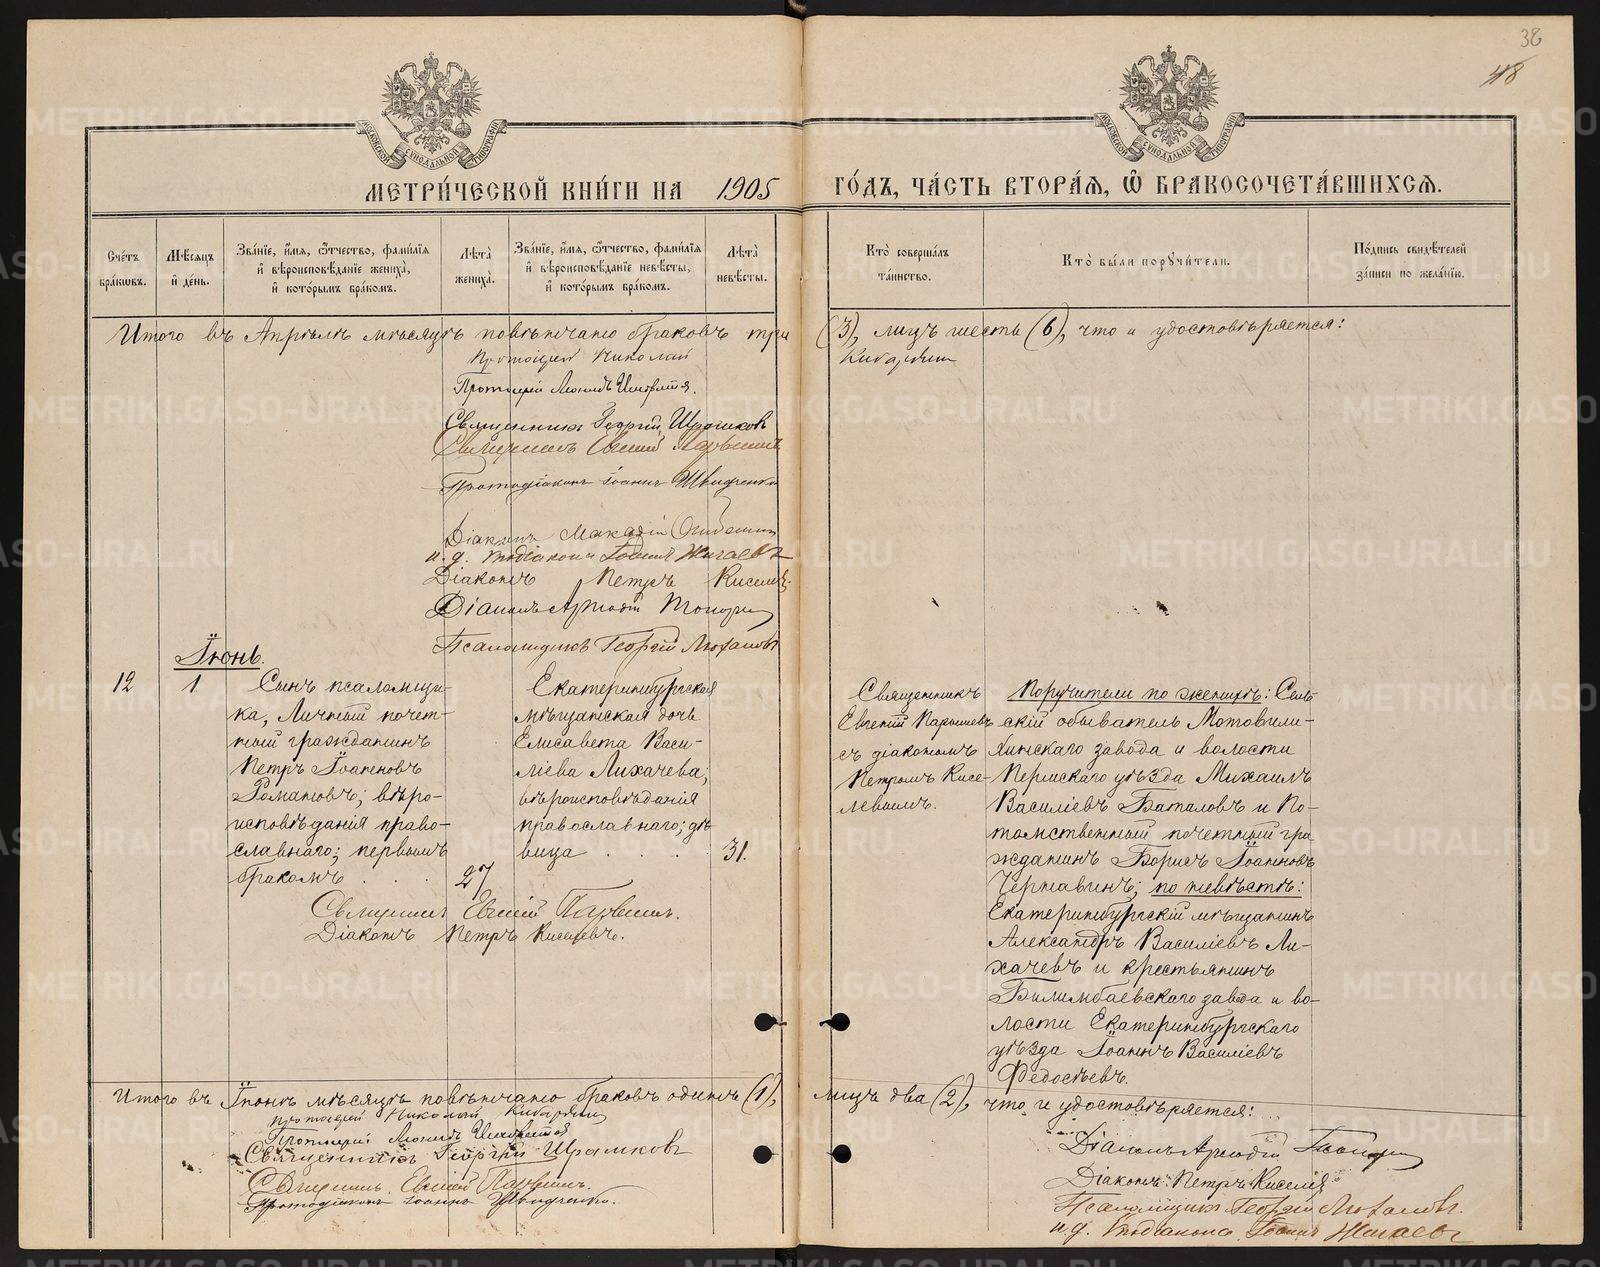 38
48
МОСКОВСКОЙ СѴНОДАЛЬНОЙ ТИПОГРАФІИ
МОСКОВСКОЙ СѴНОДАЛЬНОЙ ТИПОГРАФІИ
МЕТРИ́ЧЕСКОЙ КНИ́ГИ НА 1905 ГО́ДЪ, ЧА́СТЬ ВТОРА́Я, Ѽ БРАКОСОЧЕТА́ВШИХСЯ.
Сче́тъ бра́кѡвъ.
Мѣ́сяцъ и҆ де́нь.
Зва́нїе, и҆́мя, ѻ҆́тчество, фами́лїя и҆ вѣроисповѣ́данїе жениха̀, и҆ кото́рымъ бра́комъ.
Лѣта̀ жениха̀.
Зва́нїе, и҆́мя, ѻ҆́тчество, фами́лїя и҆ вѣроисповѣ́данїе невѣ́сты, и҆ кото́рымъ бра́комъ.
Лѣта̀ невѣ́сты.
Кто̀ соверша́лъ та́инство.
Кто̀ бы́ли порꙋчи́тели.
По́дпись свидѣ́телей за́писи по жела́нїю.
Итого въ Апрѣлѣ мѣсяцѣ повѣнчано браковъ три (3), лицъ шесть (6), что и удостовѣряется:
Протоіерей Николай Кибардин
Протоіерей Леонидъ Игноратов.
Священникъ Георгій Шрамковъ
Священникъ Евгеній Парышевъ
Протодіаконъ Іоаннъ Швидченко
Діаконъ
и. д. Иподіакона Іоаннъ Жигаевъ
Діаконъ Петръ Киселевъ
Діаконъ Аркадій
Псаломщикъ Георгій Люхановъ
Іюнь.
12
1.
Сынъ псаломщи-
ка, Личный почет-
ный гражданинъ
Петръ Іоанновъ
Романовъ; вѣро-
исповѣданія право-
славнаго; первымъ
бракомъ . . . .
27
Екатеринбургская
мѣщанская дочь
Елисавета Васи-
ліева Лихачева;
вѣроисповѣданія
православнаго; дѣ-
вица . . . .
31.
Священникъ
Евгеній Парышевъ
съ діакономъ
Петромъ Кисе-
левымъ.
Поручители по женихѣ: Сель-
скій обыватель Мотовили-
хинскаго завода и волости
Пермскаго уѣзда Михаилъ
Василіевъ Баталовъ и По-
томственный почетный гра-
жданинъ Борисъ Іоанновъ
Чернавинъ; по невѣстѣ:
Екатеринбургскій мѣщанинъ
Александръ Василіевъ Ли-
хачевъ и крестьянинъ
Билимбаевскаго завода и во-
лости Екатеринбургскаго
уѣзда Іоаннъ Василіевъ
Федосѣевъ.
Священникъ Евгеній Парышевъ.
Діаконъ Петръ Киселевъ.
Итого въ Іюнѣ мѣсяцѣ повѣнчано браковъ одинъ (1), лицъ два (2), что и удостовѣряется:
Протоіерей Николай Кибардин
Протоіерей Леонидъ
Священникъ Георгій Шрамковъ
Священникъ Евгеній Парышевъ.
Протодіаконъ Іоаннъ Швидченко.
Діаконъ Аркадій
Діаконъ Петръ Киселевъ
Псаломщикъ Георгій Люхановъ.
и. д. Иподіакона Іоаннъ Жигаевъ
METRIKI.GASO-URAL.RU